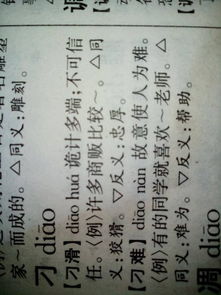 著名雕塑
家～而成的。△同义：雕刻。
刁 diāo
【刁滑】diāo huá 诡计多端；不可信
任。〈例〉许多商贩比较～。△同
义：狡猾。▽反义：忠厚。
【刁难】diāo nàn 故意使人为难。
〈例〉有的同学就喜欢～老师。△
同义：难为。▽反义：帮助。
凋 diāo
调